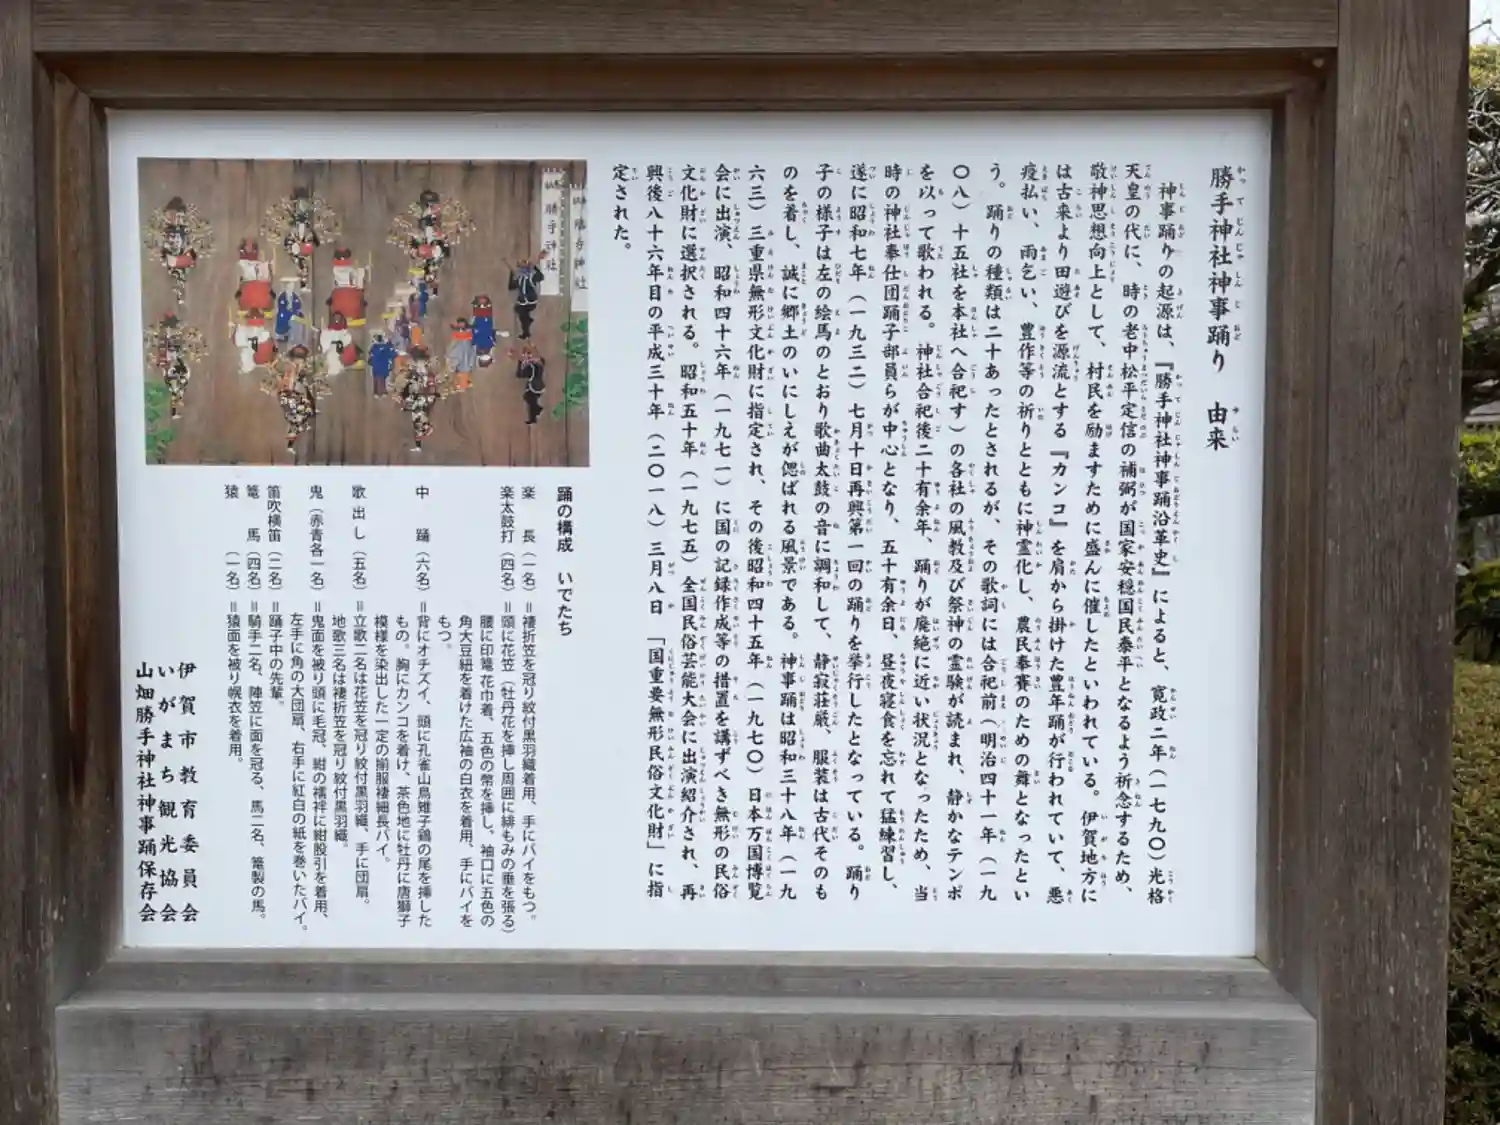 勝手神社神事踊り　由来
神事踊りの起源は、『勝手神社神事踊沿革史』によると、寛政二年（一七九〇）光格
天皇の代に、時の老中松平定信の補弼が国家安穏国民泰平となるよう祈念するため、
敬神思想向上として、村民を励ますために盛んに催したといわれている。伊賀地方に
は古来より田遊びを源流とする『カンコ』を肩から掛けた豊年踊が行われていて、悪
疫払い、雨乞い、豊作等の祈りとともに神霊化し、農民奉賽のための舞となったとい
う。　踊りの種類は二十あったとされるが、その歌詞には合祀前（明治四十一年（一九
〇八）十五社を本社へ合祀す）の各社の風教及び祭神の霊験が読まれ、静かなテンポ
を以って歌われる。神社合祀後二十有余年、踊りが廃絶に近い状況となったため、当
時の神社奉仕団踊子部員らが中心となり、五十有余日、昼夜寝食を忘れて猛練習し、
遂に昭和七年（一九三二）七月十日再興第一回の踊りを挙行したとなっている。踊り
子の様子は左の絵馬のとおり歌曲太鼓の音に調和して、静寂荘厳、服装は古代そのも
のを着し、誠に郷土のいにしえが偲ばれる風景である。神事踊は昭和三十八年（一九
六三）三重県無形文化財に指定され、その後昭和四十五年（一九七〇）日本万国博覧
会に出演、昭和四十六年（一九七一）に国の記録作成等の措置を講ずべき無形の民俗
文化財に選択される。昭和五十年（一九七五）全国民俗芸能大会に出演紹介され、再
興後八十六年目の平成三十年（二〇一八）三月八日「国重要無形民俗文化財」に指
定された。
勝手神社
勝手神社
踊の構成　いでたち
楽　長（一名）＝褄折笠を冠り紋付黒羽織着用、手にバイをもつ。
楽太鼓打（四名）＝頭に花笠（牡丹花を挿し周囲に緋もみの垂を張る）
腰に印篭花巾着、五色の幣を挿し、袖口に五色の
角大豆紐を着けた広袖の白衣を着用、手にバイを
もつ。
中　踊（六名）＝背にオチズイ、頭に孔雀山鳥雉子鶏の尾を挿した
もの。胸にカンコを着け、茶色地に牡丹に唐獅子
模様を染出した一定の揃服褄細長バイ。
歌出し（五名）＝立歌二名は花笠を冠り紋付黒羽織、手に団扇。
地歌三名は褄折笠を冠り紋付黒羽織。
鬼（赤青各一名）＝鬼面を被り頭に毛冠、紺の襦袢に紺股引を着用、
左手に角の大団扇、右手に紅白の紙を巻いたバイ。
笛吹横笛（二名）＝踊子中の先輩。
篭　馬（四名）＝騎手二名、陣笠に面を冠る、馬二名、篭製の馬。
猿　（一名）＝猿面を被り幌衣を着用。
伊賀市教育委員会
いがまち観光協会
山畑勝手神社神事踊保存会